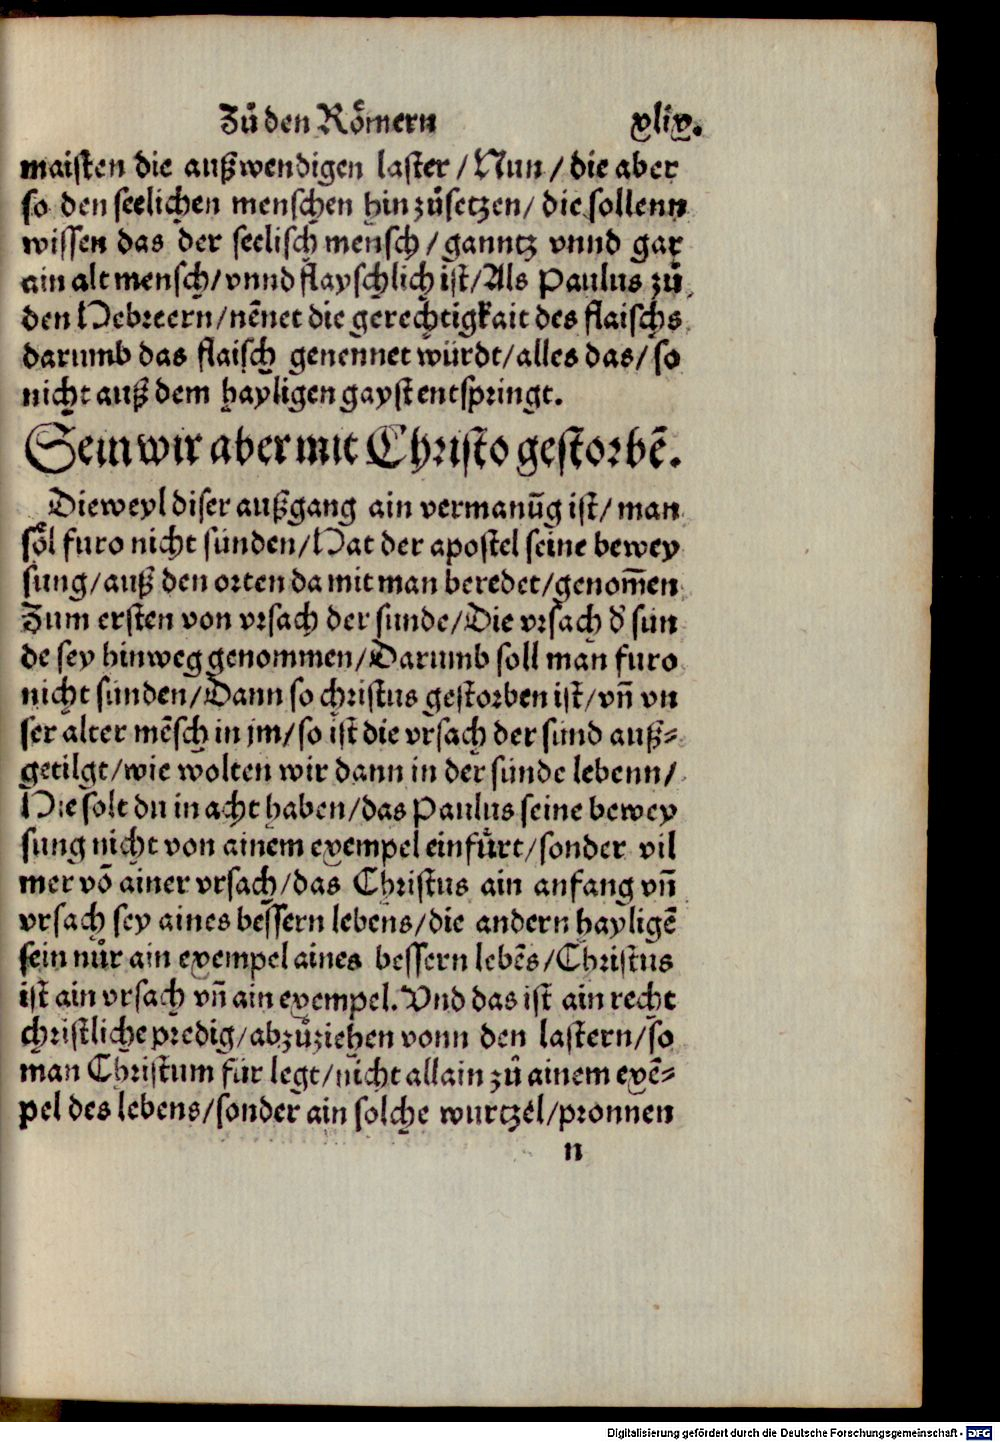 Zů den Rŏmern xlix.
maisten die außwendigen laster / Nun / die aber
so den seelichen menschen hin zůsetzen / die sollenn
wissen das der seelisch mensch / ganntz vnnd gar
ain alt mensch / vnnd flayschlich ist / Als Paulus zů
den Hebreern / nēnet die gerechtigkait des flaischs
darumb das flaisch genennet würdt / alles das / so
nicht auß dem hayligen gayst entspringt.
Sein wir aber mit Christo gestorbē.
Dieweyl diser außgang ain vermanūg ist / man
söl furo nicht sünden / Hat der apostel seine bewey
sung / auß den orten da mit man beredet / genom̄en
Zum ersten von vrsach der sunde / Die vrsach d' sün
de sey hinweg genommen / Darumb soll man furo
nicht sünden / Dann so christus gestorben ist / vn̄ vn
ser alter mēsch in jm / so ist die vrsach der sünd auß⸗
getilgt / wie wolten wir dann in der sünde lebenn /
Hie solt du in acht haben / das Paulus seine bewey
sung nicht von ainem exempel einfürt / sonder vil
mer vō ainer vrsach / das Christus ain anfang vn̄
vrsach sey aines bessern lebens / die andern hayligē
sein nůr ain exempel aines bessern lebēs / Christus
ist ain vrsach vn̄ ain exempel. Vnd das ist ain recht
christliche predig / abzůziehen vonn den lastern / so
man Christum für legt / nicht allain zů ainem exē⸗
pel des lebens / sonder ain solche wurtzel / pronnen
n
Digitalisierung gefördert durch die Deutsche Forschungsgemeinschaft - DFG